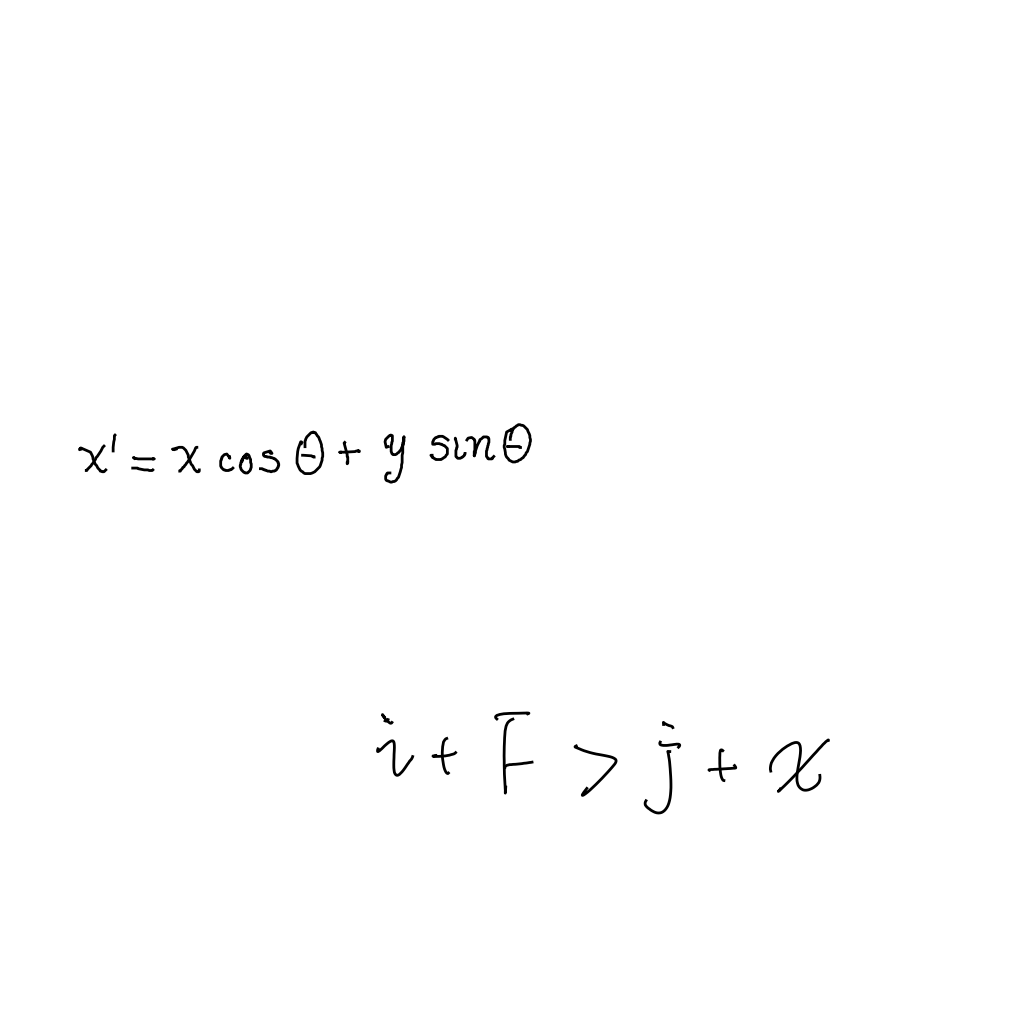 x' = x cos θ + y sin θ
i + F > j + x